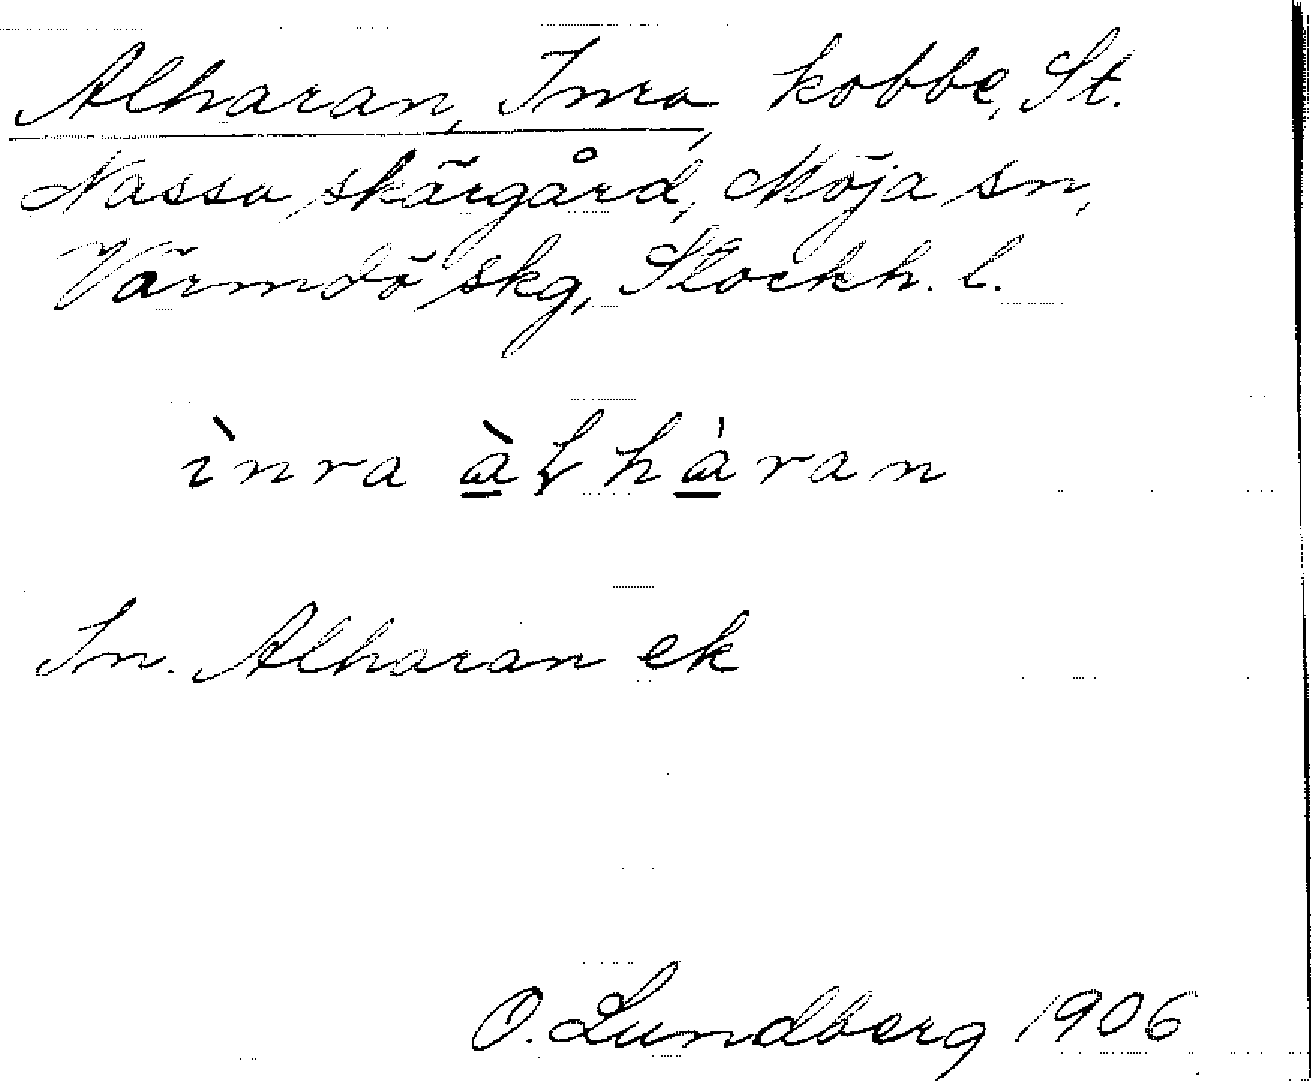 Alharan, Inra, kobbe, St.
Nassa skärgård, Möja sn,
Värmdö skg, Stockh. l.
ìnra àɫhàran
In. Alharan ek
O. Lundberg 1906